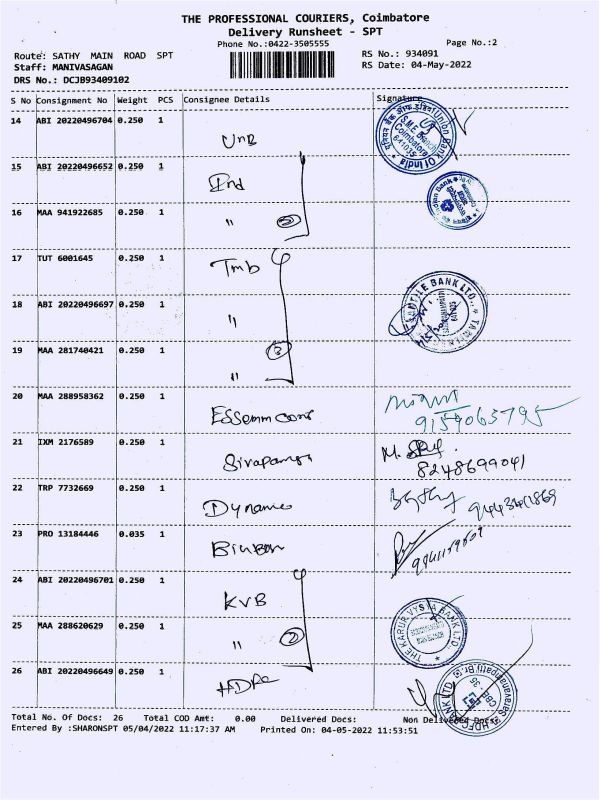 THE PROFESSIONAL COURIERS, Coimbatore
Delivery Runsheet - SPT
Phone No.:0422-3505555
Page No.:2
Route: SATHY MAIN ROAD SPT
RS No.: 934091
Staff: MANIVASAGAN
RS Date: 04-May-2022
DRS No.: DCJB93409102
S No Consignment No Weight PCS Consignee Details Signature
14 ABI 20220496704 0.250 1 UnB
15 ABI 20220496652 0.250 1 Ind
16 MAA 941922685 0.250 1 "
17 TUT 6001645 0.250 1 Tmb
18 ABI 20220496697 0.250 1 "
19 MAA 281740421 0.250 1 " 3
20 MAA 288958362 0.250 1 Essemm cons 9159063795
21 IXM 2176589 0.250 1 M. 8248699041
22 TRP 7732669 0.250 1 Dynamic
23 PRO 13184446 0.035 1
24 ABI 20220496701 0.250 1 KVB
25 MAA 288620629 0.250 1 " 2 THE KARUR VYSYA BANK LTD.
26 ABI 20220496649 0.250 1 HDFC HDFC BANK LTD
Total No. Of Docs: 26 Total COD Amt: 0.00 Delivered Docs: Non Delivered Docs:
Entered By :SHARONSPT 05/04/2022 11:17:37 AM Printed On: 04-05-2022 11:53:51